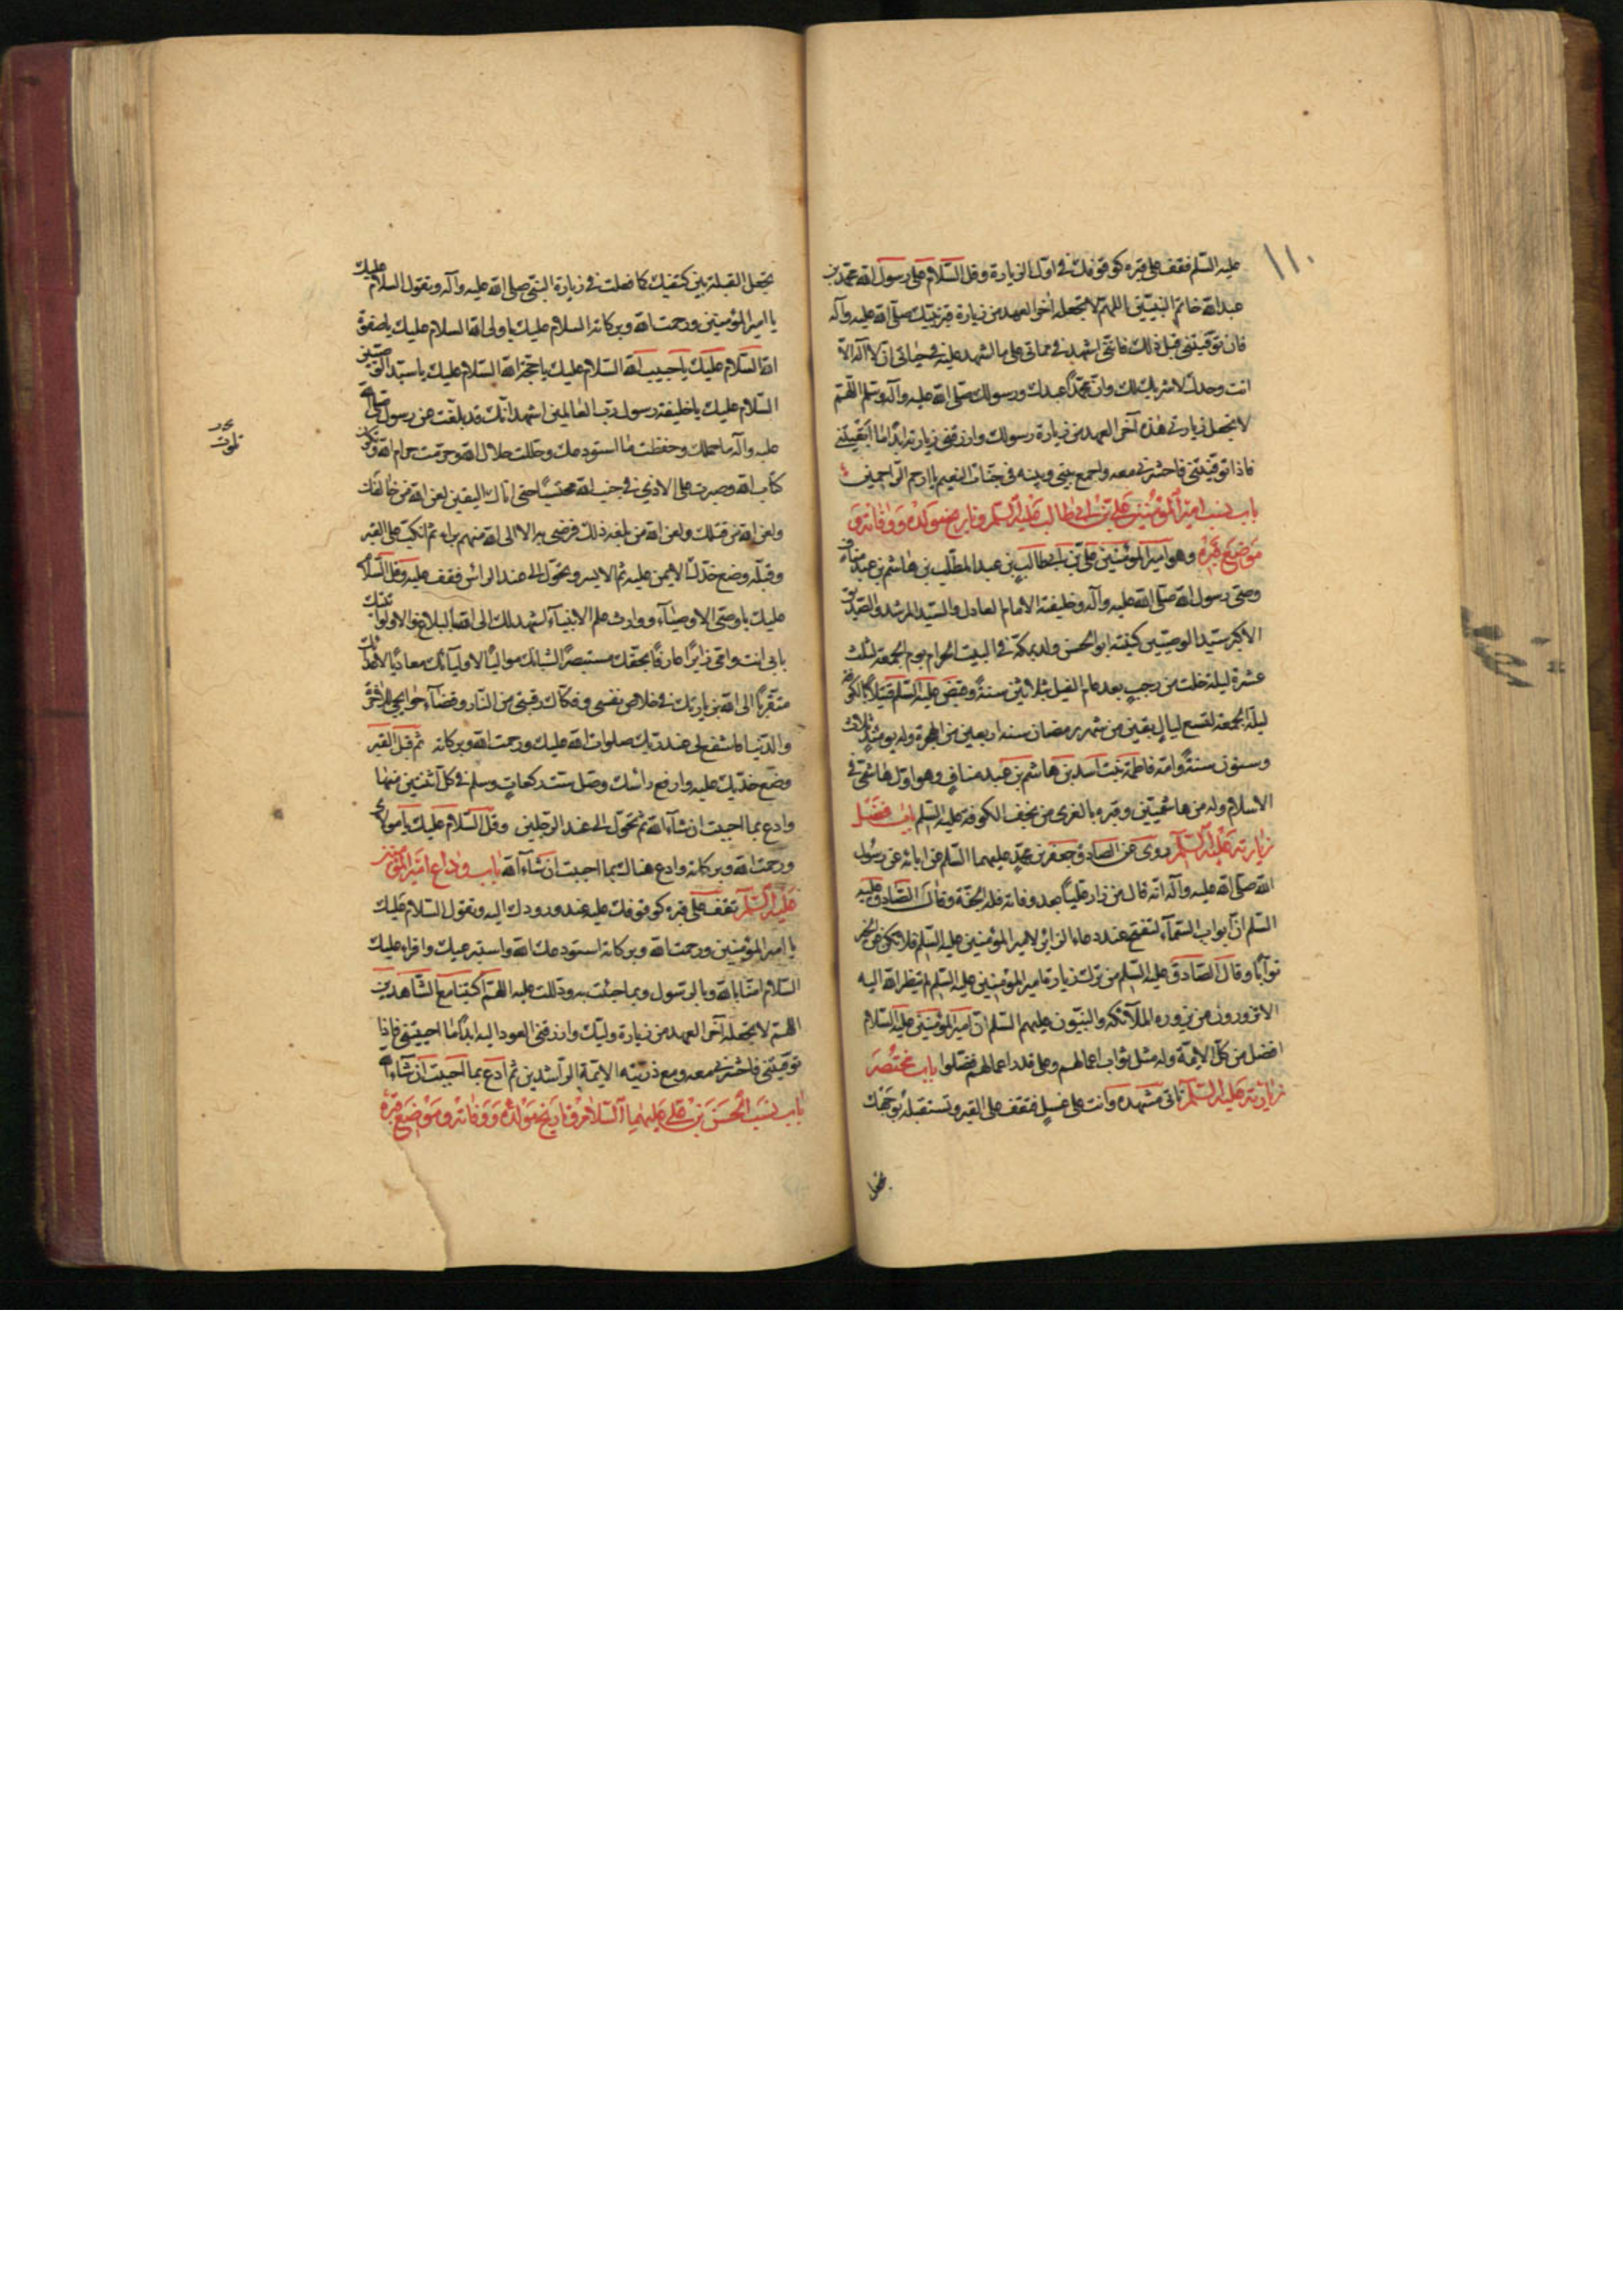 ١١٠
عليه السّلم فقف على قبره كوقوفك فى اوّل الزيارة وقل السّلام على رسول الله محمّد بن
عبدالله خاتم النبيّين اللهمّ لا تجعله اٰخر العهد من زيارة قبر نبيّك صلّى الله عليه وآله
فان توفّيتنى قبل ذلك فانّى اشهد فى مماتى على ما اشهد عليه فى حياتى ان لا اله الّا
انت وحدك لا شريك لك وانّ محمّداً عبدك ورسولك صلّى الله عليه وآله وسلم اللهمّ
لا تجعل زيارتى هذه آخر العهد من زيارة رسولك وارزقنى زيارته ابداً ما ابقيتنى
فاذا توفّيتنى فاحشرنى معه واجمع بينى وبينه فى جنّات النعيم يا ارحم الرّاحمين
باب نسب اميرالمؤمنين علىّ بن ابى طالب عليه السّلم وتاريخ مولده ووفاته و
موضع قبره وهو اميرالمؤمنين علىّ بن ابيطالب بن عبدالمطّلب بن هاشم بن عبد مناف
وصىّ رسول الله صلّى الله عليه وآله وخليفته الامام العادل والسّيد المرشد والصّديق
الاكبر سيّد الوصيّين كنيته ابوالحسن ولد بمكّة فى البيت الحرام يوم الجمعة لثلث
عشرة ليلة خلت من رجب بعد عام الفيل بثلاثين سنة وقبض عليه السّلم قتيلاً بالكوفة
ليلة الجمعة لتسع ليال بقين من شهر رمضان سنة اربعين من الهجرة وله يومئذ ثلاث
وستون سنة وامّه فاطمة بنت اسد بن هاشم بن عبد مناف وهو اوّل هاشمىّ فى
الاسلام ولد من هاشميّين وقبره بالغرى من نجف الكوفة عليه السّلم باب فضل
زيارته عليه السّلم روى عن الصادق جعفر بن محمّد عليهما السّلم عن ابائه عن رسول
الله صلّى الله عليه وآله انّه قال من زار عليّاً بعد وفاته فله الجنّة وقال الصّادق عليه
السّلم انّ ابواب السّمآء لتفتح عند دعاء الزائر لاميرالمؤمنين عليه السّلم فلا تكن عن الخير
نوّاماً وقال الصّادق عليه السّلم من ترك زيارة اميرالمؤمنين عليه السّلم لم ينظر الله اليه
الا تزورون من يزوره الملآئكة والنبيّون عليهم السّلم انّ اميرالمؤمنين عليه السّلام
افضل من كلّ الائمّة وله مثل ثواب اعمالهم وعلى قدر اعمالهم فضّلوا باب مختصر
زيارته عليه السّلم تأتى مشهده وانت على غسل فتقف على القبر وتستقبله بوجهك
تجعل
تجعل القبلة بين كتفيك كما فعلت فى زيارة النبى صلى الله عليه وآله وتقول السلام عليك
يا اميرالمؤمنين ورحمت الله وبركاته السلام عليك يا ولى الله السلام عليك يا صفوة
الله السّلام عليك يا حبيب الله السّلام عليك يا حجّة الله السّلام عليك يا سيّد الوصيّين
السّلام عليك يا خليفة رسول ربّ العالمين اشهد انّك قد بلّغت عن رسول الله صلى الله
عليه وآله ما حملك وحفظت ما استودعك وحلّلت حلال الله وحرّمت حرام الله وتلوت
كتاب الله وصبرت على الاذى فى جنب الله محتسباً حتى اتاك اليقين لعن الله من خالفك
ولعن الله من قتلك ولعن الله من بلغه ذلك فرضى به انا الى الله منهم براء ثم انكبّ على القبر
وقبّله وضع خدّك الايمن عليه ثم الايسر وتحوّل الى عند الراس فقف عليه وقل السّلام
عليك يا وصىّ الاوصيآء ووارث علم الانبيآء اشهد لك الى الله بالبلاغ والاداء اتيتك
بابى انت وامّى زايراً عارفاً بحقّك مستبصراً بشانك موالياً لاوليآئك معادياً لاعدائك
متقرّباً الى الله بزيارتك فى خلاص نفسى وفكاك رقبتى من النّار وقضآء حوايجى للاخرة
والدّنيا فاشفع لى عند ربّك صلوات الله عليك ورحمت الله وبركاته ثم قبّل القبر
وضع خدّيك عليه وارفع رأسك وصلّ ستّ ركعات وسلم فى كلّ اثنتين منها
وادع بما احببت ان شآء الله ثم تحوّل الى عند الرجلين وقل السّلام عليك يا مولاى
ورحمت الله وبركاته وادع هناك بما احببت ان شآء الله باب وداع اميرالمؤمنين
عليه السّلم تقف على قبره كوقوفك عليه عند ورودك اليه وتقول السّلام عليك
يا اميرالمؤمنين ورحمت الله وبركاته استودعك الله واسترعيك واقراء عليك
السّلام امنّا بالله وبالرسول وبما جئت به ودللت عليه اللهمّ اكتبنا مع الشّاهدين
اللهمّ لا تجعله آخر العهد من زيارة وليّك وارزقنى العود اليه ابداً ما احييتنى فاذا
توفّيتنى فاحشرنى معه ومع ذرّيته الائمّة الرّاشدين ثم ادع بما احببت ان شآء الله
باب نسب الحسن بن على عليهما السّلام وتاريخ مولده ووفاته وموضع قبره
تلوت